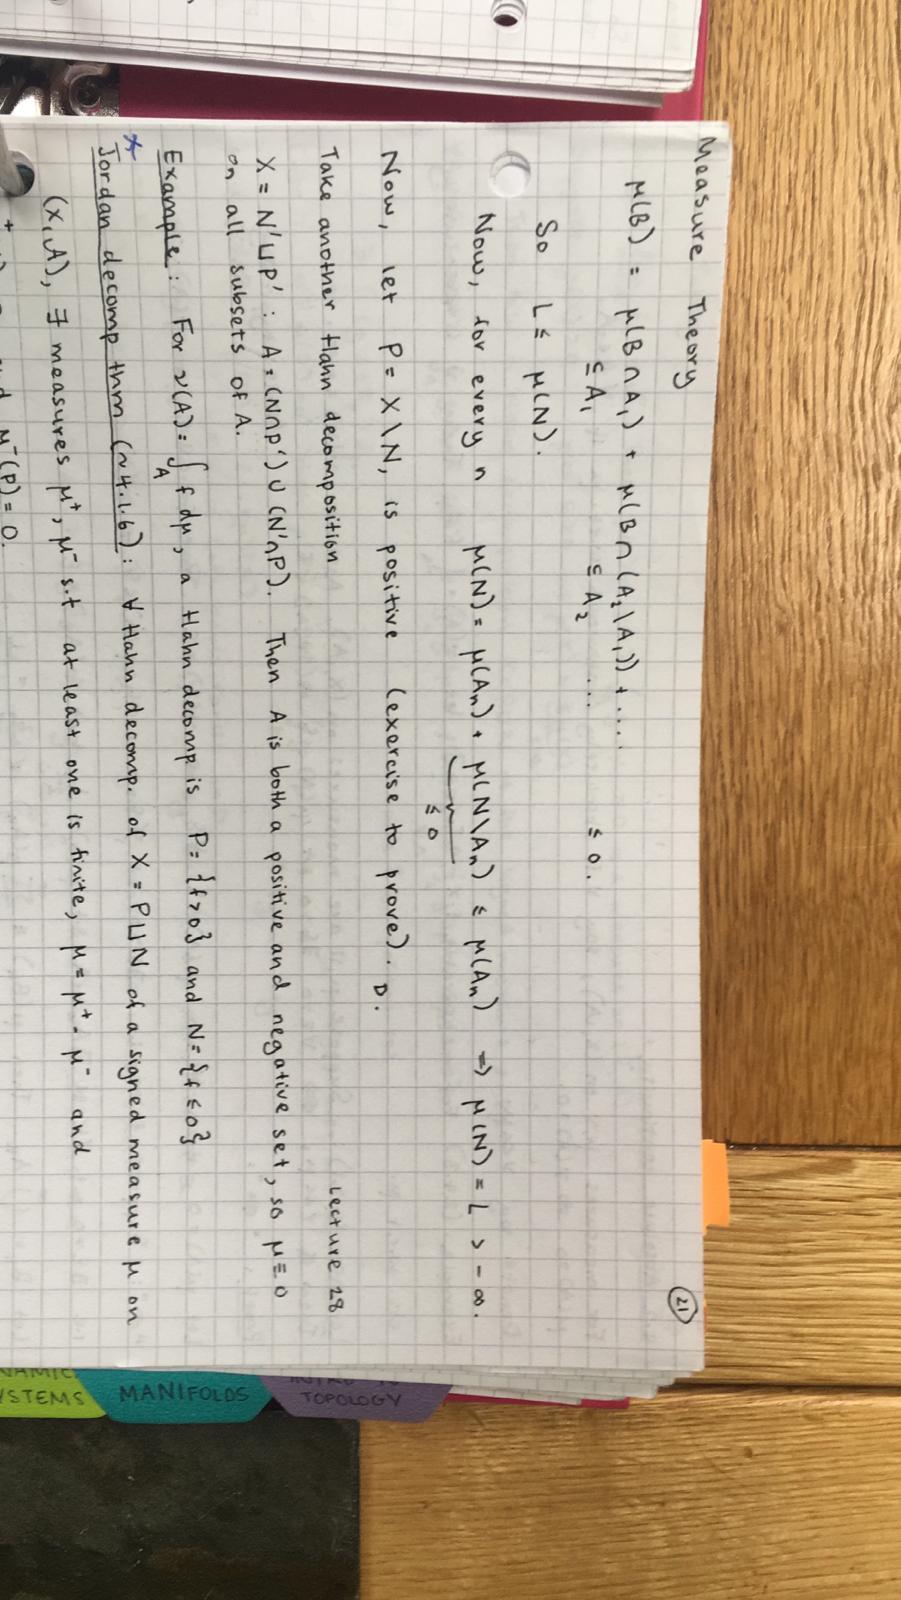 Measure Theory
21
μ(B) = μ(B ∩ A₁) + μ(B ∩ (A₂ \ A₁)) + ....
⊆ A₁ ⊆ A₂ ... ≤ 0.
So L ≤ μ(N).
Now, for every n μ(N) = μ(Aₙ) + μ(N \ Aₙ) ≤ μ(Aₙ) ⇒ μ(N) = L > -∞.
≤ 0
Now, let P = X \ N, is positive (exercise to prove). □.
Lecture 28
Take another Hahn decomposition
X = N' ⊔ P' : A = (N ∩ P') ∪ (N' ∩ P). Then A is both a positive and negative set, so μ ≡ 0
on all subsets of A.
Example: For ν(A) = ∫_A f dμ, a Hahn decomp is P = {f > 0} and N = {f ≤ 0}
* Jordan decomp thm (~4.1.6): ∀ Hahn decomp. of X = P ⊔ N of a signed measure μ on
(X, A), ∃ measures μ⁺, μ⁻ s.t at least one is finite, μ = μ⁺ - μ⁻ and
μ⁻(P) = 0.
SYSTEMS
MANIFOLDS
TOPOLOGY